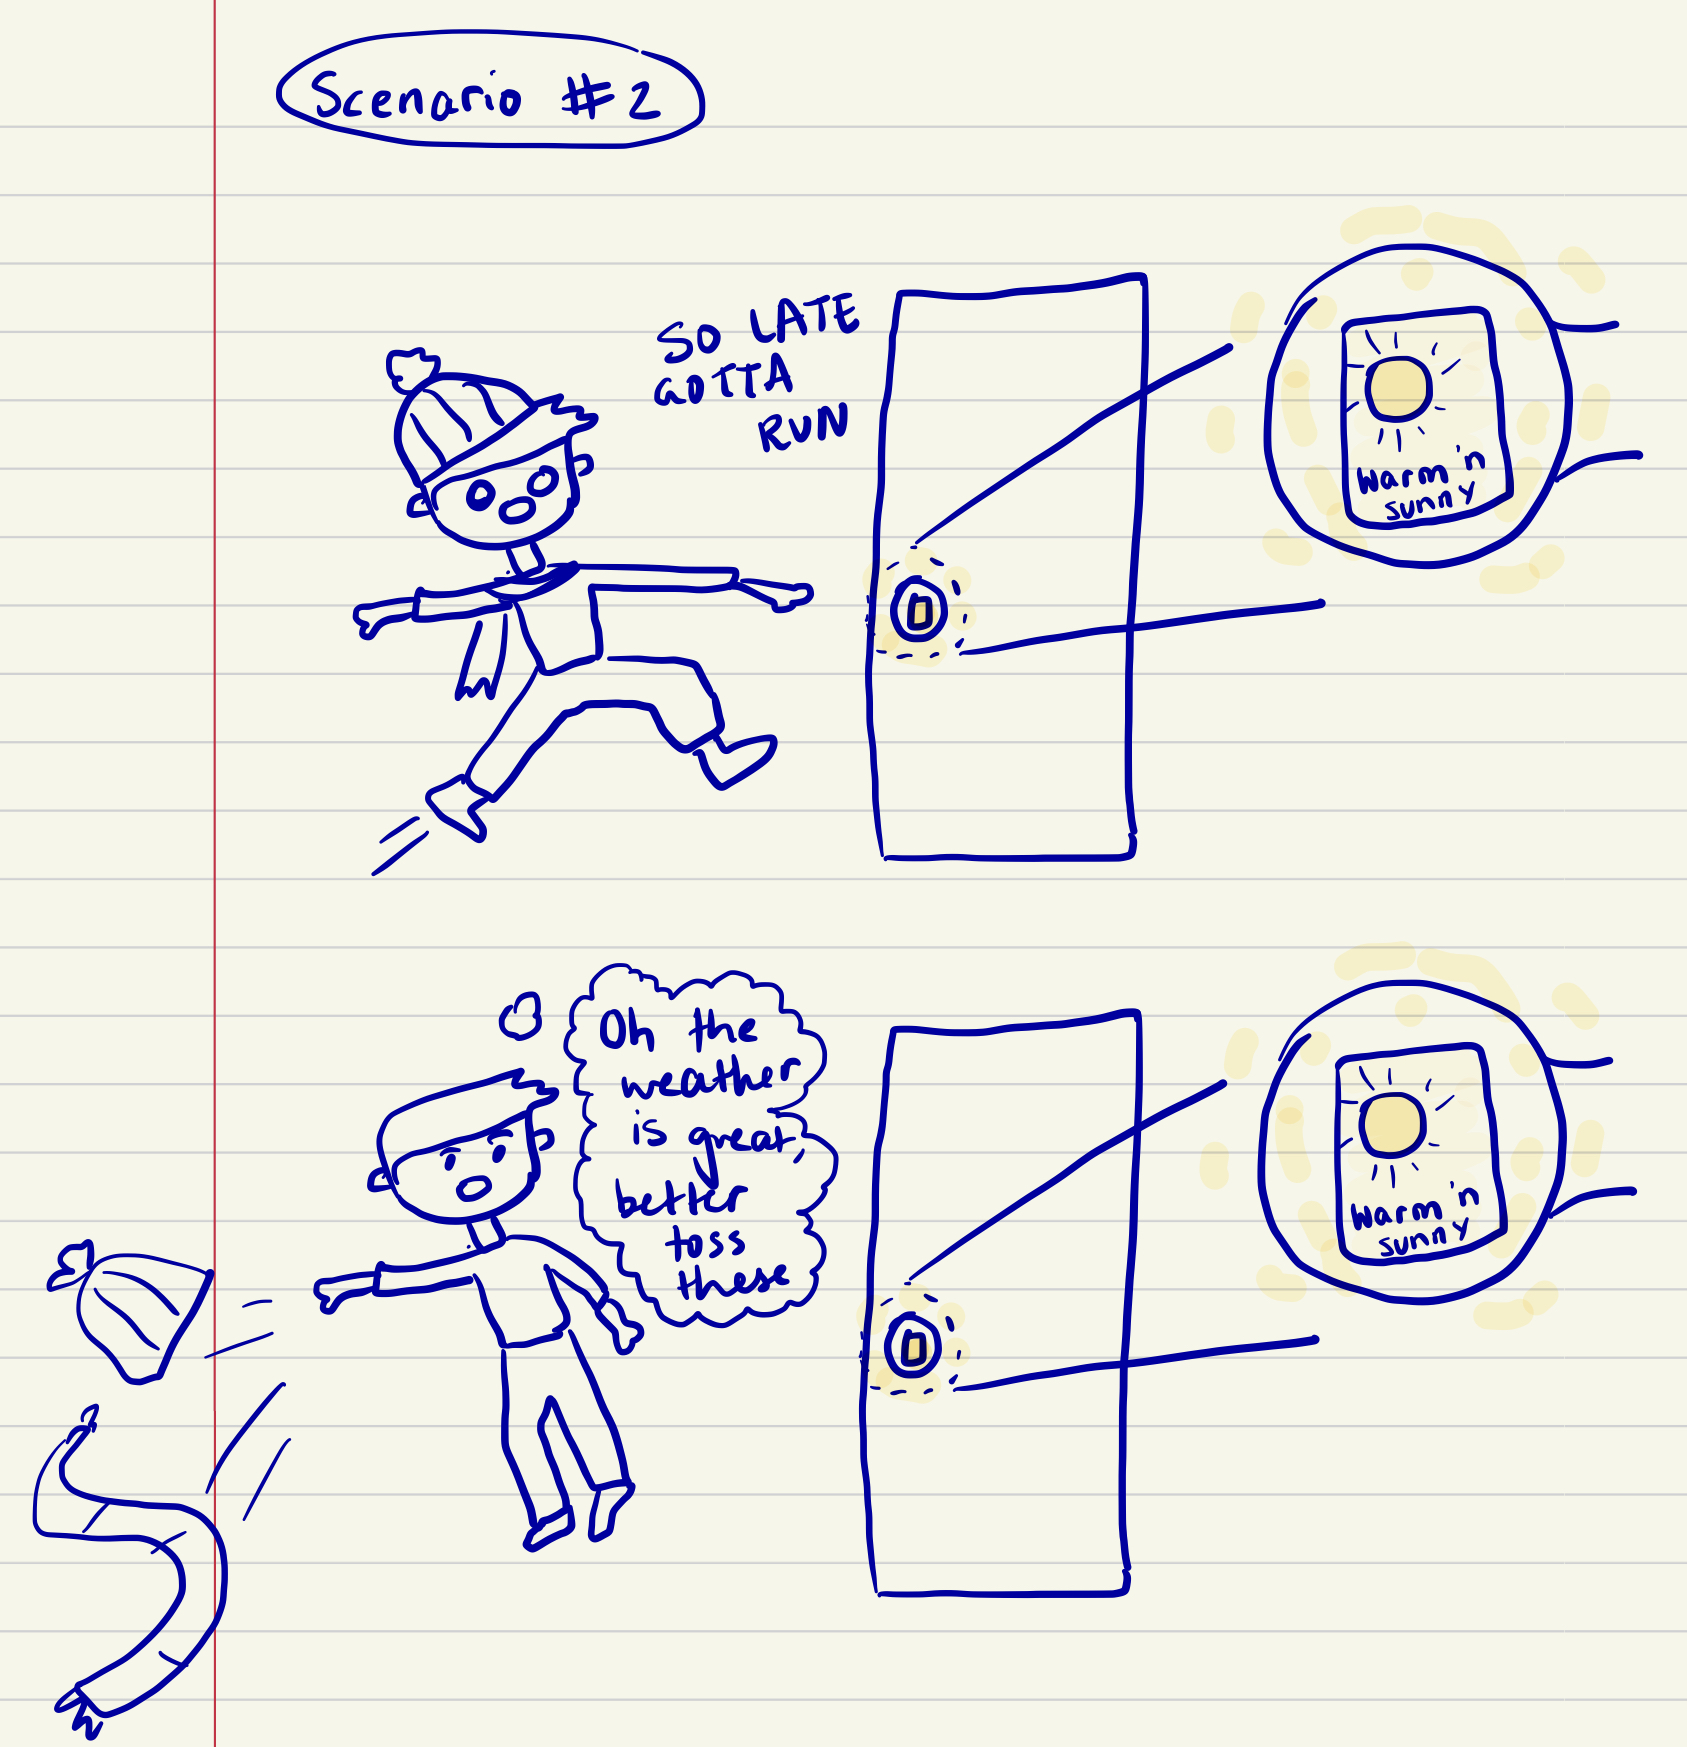 Scenario #2
SO LATE
GOTTA
RUN
Warm 'n
sunny
Oh the
weather
is great,
better
toss
these
Warm 'n
sunny